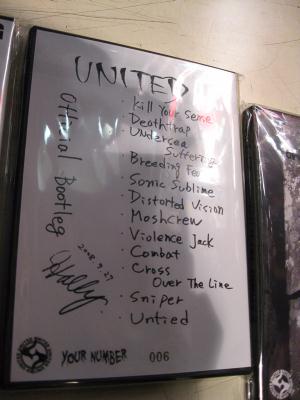 UNITED
Official Bootleg
· Kill Your Sense
· Deathtrap
· Undersea
Suffering
· Breeding Fea
· Sonic Sublime
· Distorted Vision
· MoshCrew
· Violence Jack
· Combat
· Cross
Over The Line
· Sniper
· Untied
2008.9.27
Hally
YOUR NUMBER 006